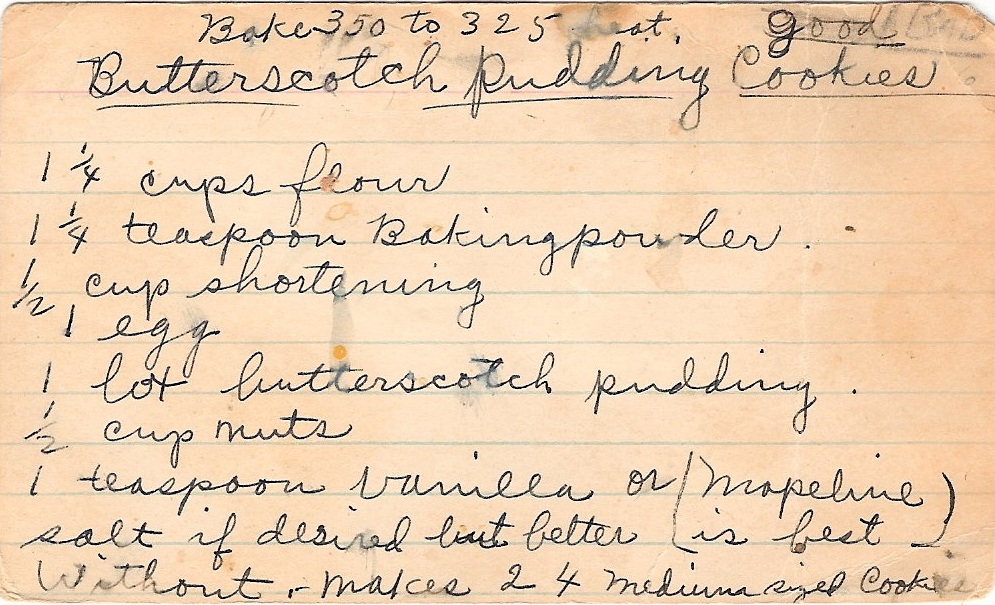 Bake 350 to 325 heat. Good
Butterscotch Pudding Cookies.
1 1/4 cups flour
1 1/4 teaspoon Bakingpowder.
1/2 cup shortening
1 egg
1 box butterscotch pudding.
1/2 cup nuts
1 teaspoon vanilla or (Mapeline)
salt if desired but better (is best)
Without. - Makes 24 Medium sized Cookies